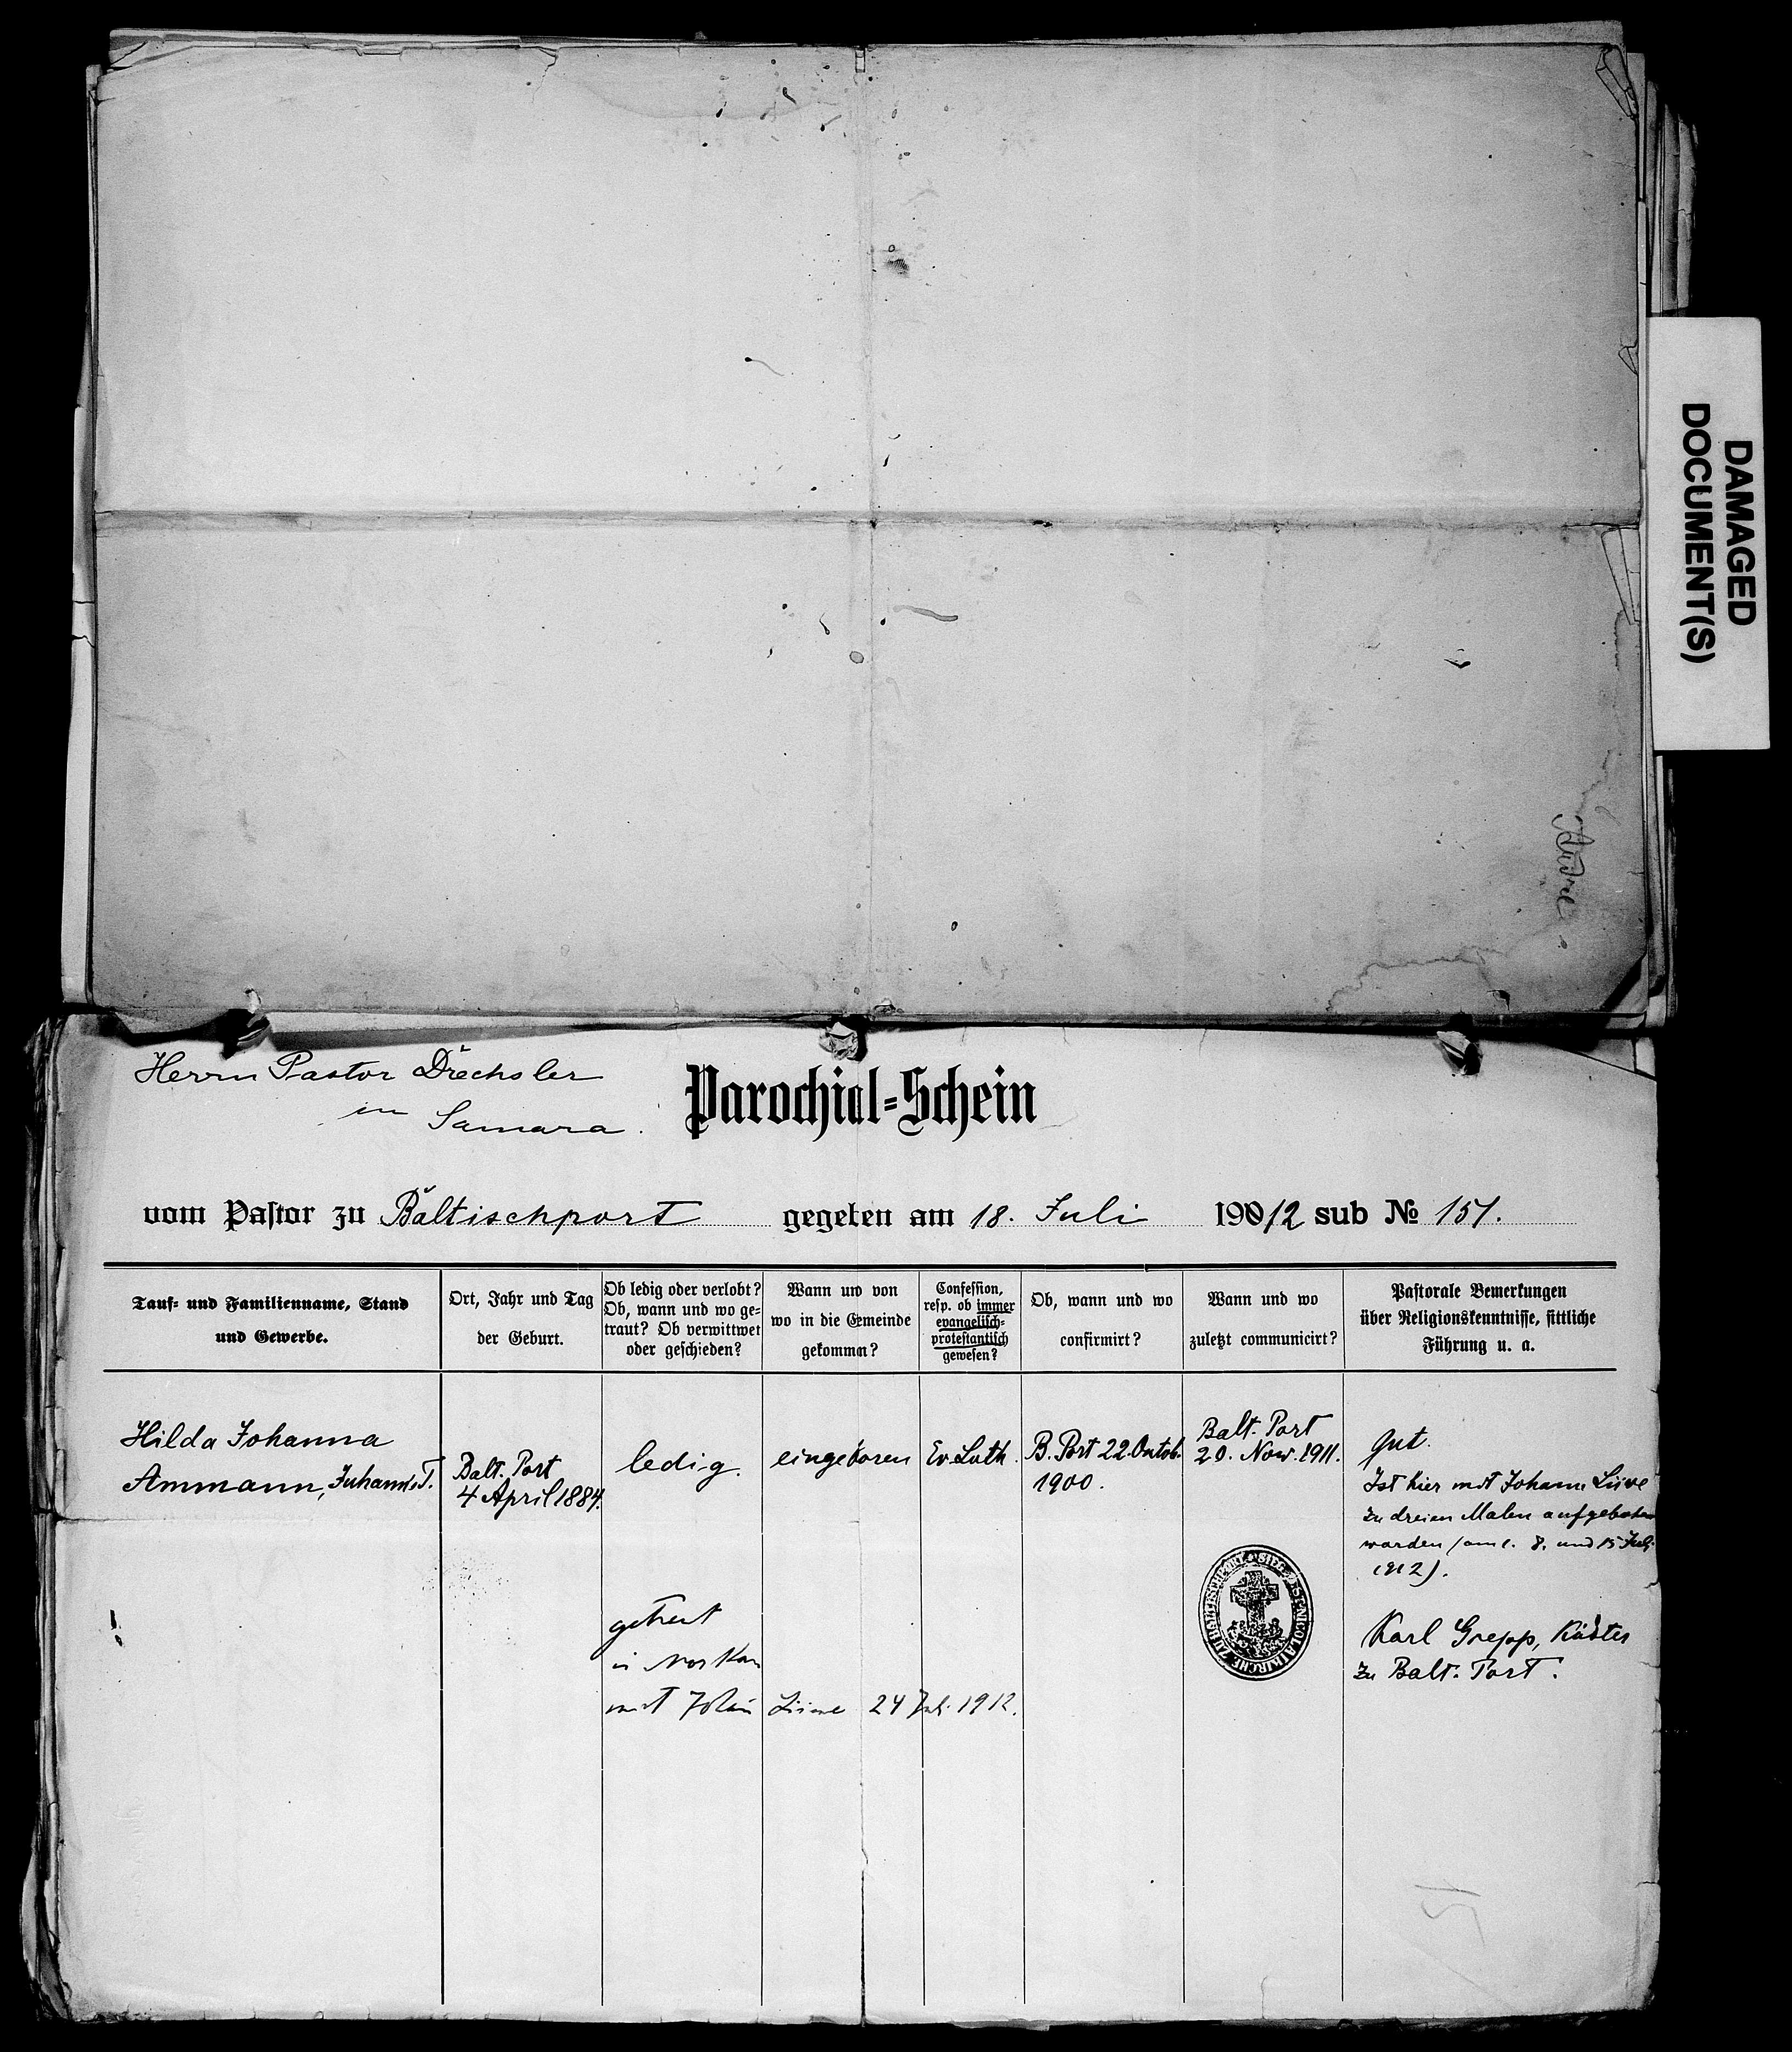 DAMAGED
DOCUMENT(S)
Herrn Pastor Drechsler
in Samara.
Parochial-Schein
vom Pastor zu Baltischport gegeben am 18. Juli 19012 sub № 151.
Tauf- und Familienname, Stand
und Gewerbe.
Ort, Jahr und Tag
der Geburt.
Ob ledig oder verlobt?
Ob, wann und wo ge-
traut? Ob verwittwet
oder geschieden?
Wann und von
wo in die Gemeinde
gekommen?
Confession,
resp. ob immer
evangelisch-
protestantisch
gewesen?
Ob, wann und wo
confirmirt?
Wann und wo
zuletzt communicirt?
Pastorale Bemerkungen
über Religionskenntnisse, sittliche
Führung u. a.
Hilda Johanna
Ammann, Juhans T.
Balt. Port
4 April 1884.
ledig.
eingeboren
Ev. Luth.
B. Port 22. Octob.
1900.
Balt. Port
20. Nov. 1911.
Gut.
Ist hier mit Johann Liive
zu dreien Malen aufgeboten
worden (am 1. 8. und 15 Juli
1912).
Karl Grepp, Küster
zu Balt. Port.
getraut
in
mit Johan Liive 24 Jul. 1912.